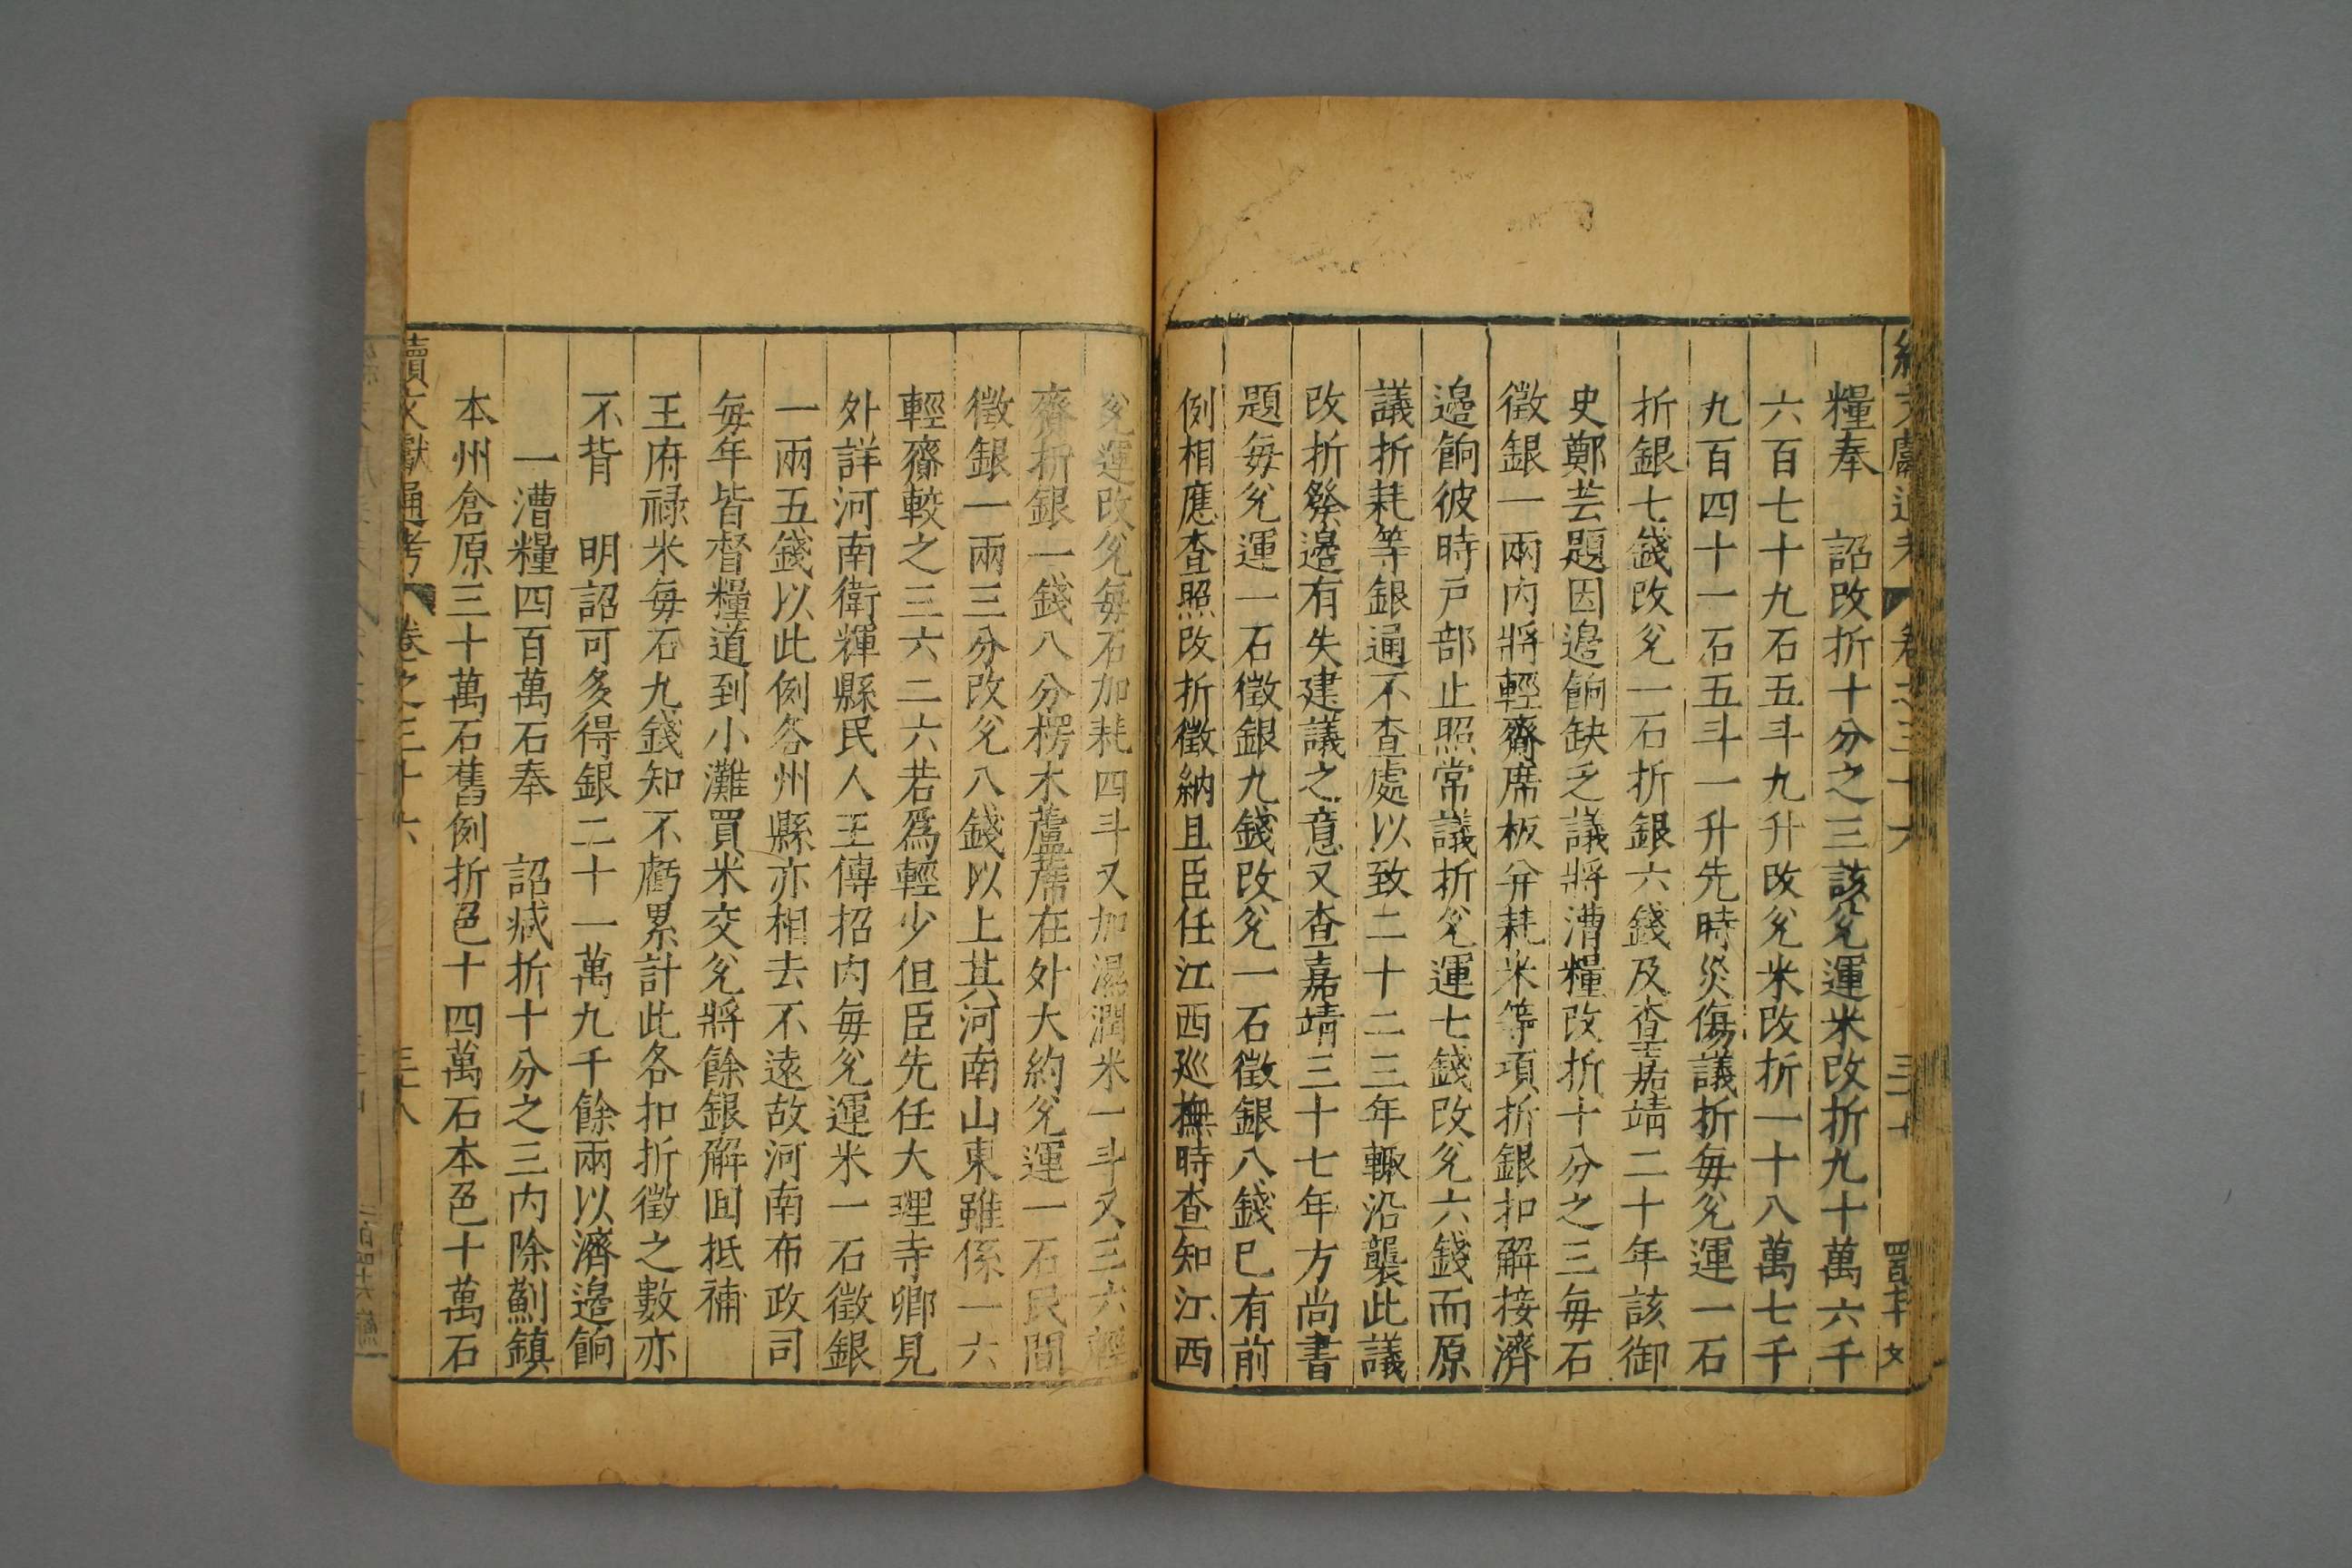 糧奉　詔改折十分之三該兊運米改折九十萬六千
六百七十九石五斗九升改兊米改折一十八萬七千
九百四十一石五斗一升先時災傷議折每兊運一石
折銀七錢改兊一石折銀六錢及查嘉靖二十年該御
史鄭芸題因邉餉缺乏議將漕糧改折十分之三每石
徵銀一兩內將輕齎席板并耗米等項折銀扣解接濟
邉餉彼時戸部止照常議折兊運七錢改兊六錢而原
議折耗等銀通不查處以致二十二三年輙沿襲此議
改折發邉有失建議之意又查嘉靖三十七年方尚書
題每兊運一石徵銀九錢改兊一石徵銀八錢已有前
例相應查照改折徵納且臣任江西廵撫時查知江西
兊運改兊每石加耗四斗又加濕潤米一斗又三六輕
齎折銀一錢八分楞木蘆蓆在外大約兊運一石民間
徵銀一兩三分改兊八錢以上其河南山東雖係一六
輕齎較之三六二六若爲輕少但臣先任大理寺卿見
外詳河南衛輝縣民人王傳招內每兊運米一石徵銀
一兩五錢以此例各州縣亦相去不遠故河南布政司
每年皆督糧道到小灘買米交兊將餘銀解囬抵補
王府禄米每石九錢知不虧累計此各扣折徵之數亦
不背　明詔可多得銀二十一萬九千餘兩以濟邉餉
一漕糧四百萬石奉　詔減折十分之三內除薊鎮
本州倉原三十萬石舊例折色十四萬石本色十萬石
續文獻通考　卷之三十六　三十八